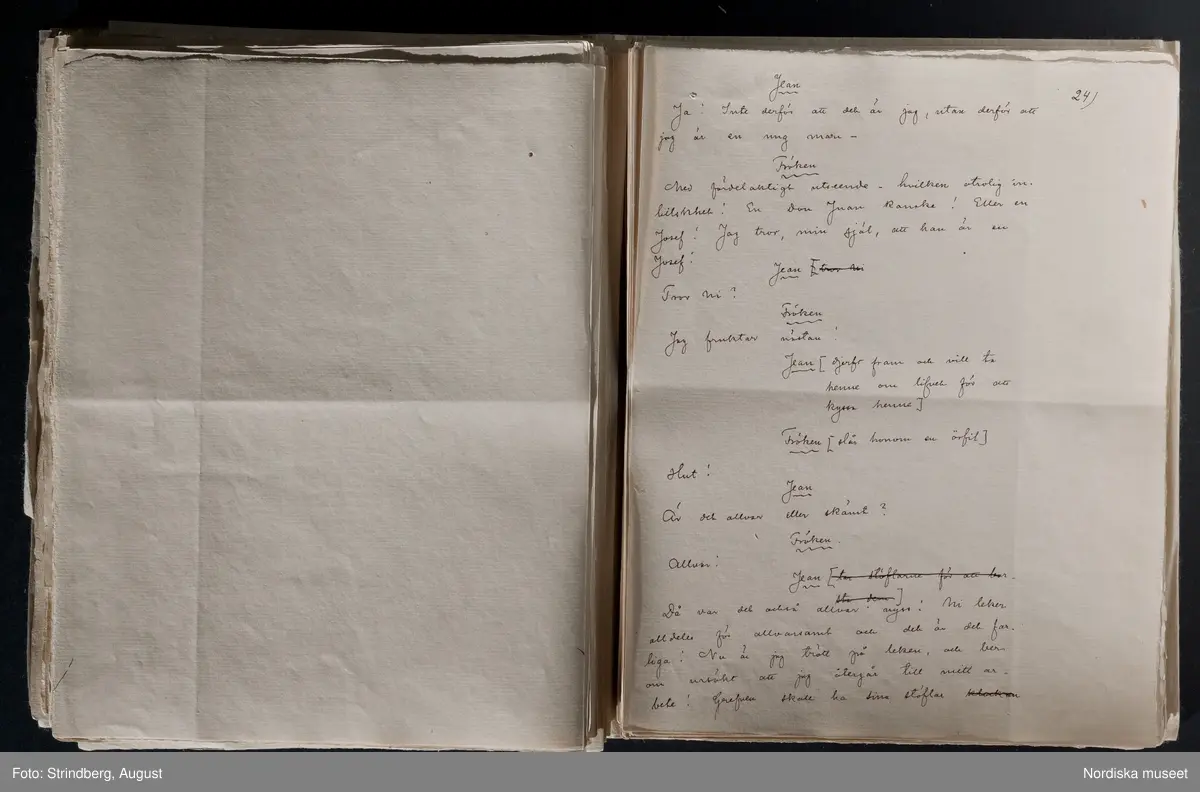 24)
Jean
Ja! Inte derför att det är jag, utan derför att
jag är en ung man –
Fröken
Med fördelaktigt utseende – hvilken otrolig in-
bilskhet! En Don Juan kanske! Eller en
Josef! Jag tror, min själ, att han är en
Josef!
Jean [tror ni
Tror Ni?
Fröken
Jag fruktar nästan!
Jean [djerft fram och vill ta
henne om lifvet för att
kyssa henne]
Fröken [slår honom en örfil]
Hut!
Jean
Är det allvar eller skämt?
Fröken.
Allvar!
Jean [tar stöflarne för att bor-
sta dem]
Då var det också allvar nyss! Ni leker
alldeles för allvarsamt och det är det far-
liga! Nu är jag trött på leken, och ber
om ursäkt att jag återgår till mitt ar-
bete! Grefven skall ha sina stöflar klockan
Foto: Strindberg, August
Nordiska museet